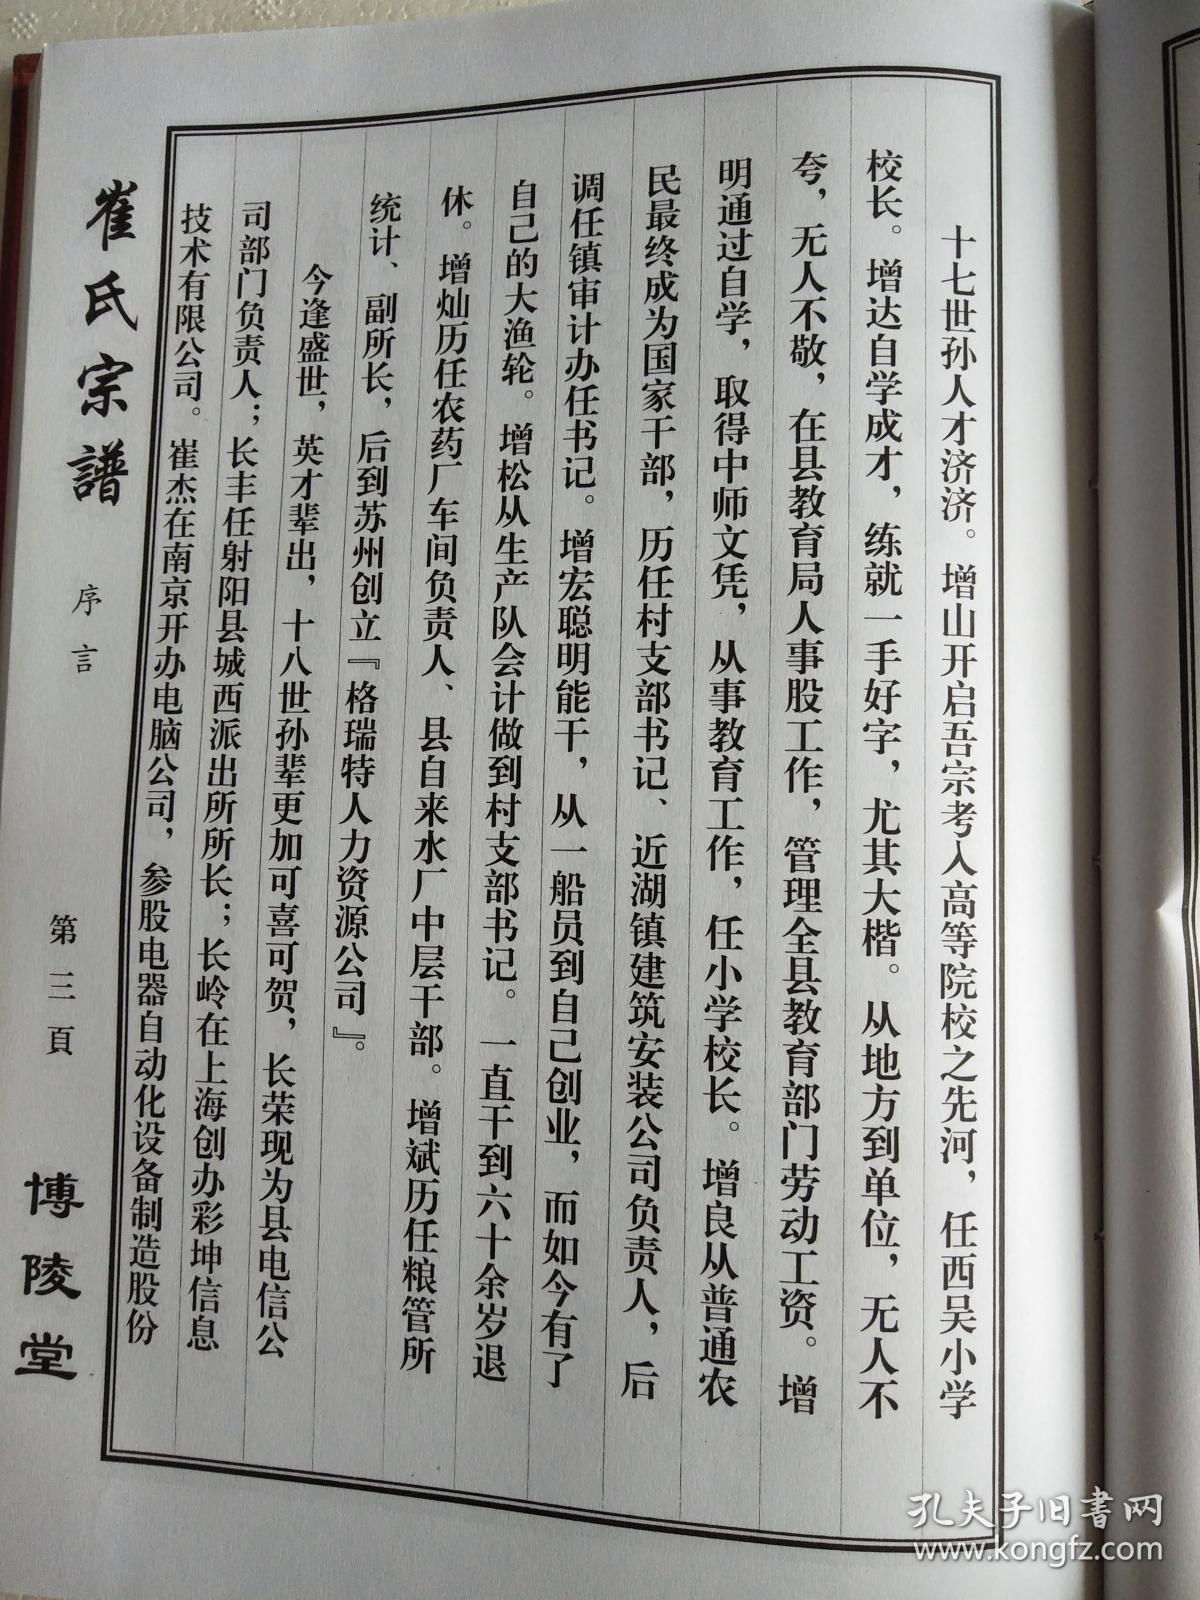 十七世孙人才济济。增山开启吾宗考入高等院校之先河，任西吴小学
校长。增达自学成才，练就一手好字，尤其大楷。从地方到单位，无人不
夸，无人不敬，在县教育局人事股工作，管理全县教育部门劳动工资。增
明通过自学，取得中师文凭，从事教育工作，任小学校长。增良从普通农
民最终成为国家干部，历任村支部书记、近湖镇建筑安装公司负责人，后
调任镇审计办任书记。增宏聪明能干，从一船员到自己创业，而如今有了
自己的大渔轮。增松从生产队会计做到村支部书记。一直干到六十余岁退
休。增灿历任农药厂车间负责人、县自来水厂中层干部。增斌历任粮管所
统计、副所长，后到苏州创立『格瑞特人力资源公司』。
今逢盛世，英才辈出，十八世孙辈更加可喜可贺，长荣现为县电信公
司部门负责人；长丰任射阳县城西派出所所长；长岭在上海创办彩坤信息
技术有限公司。崔杰在南京开办电脑公司，参股电器自动化设备制造股份
崔氏宗譜 序言 第三頁 博陵堂
孔夫子旧書网
www.kongfz.com